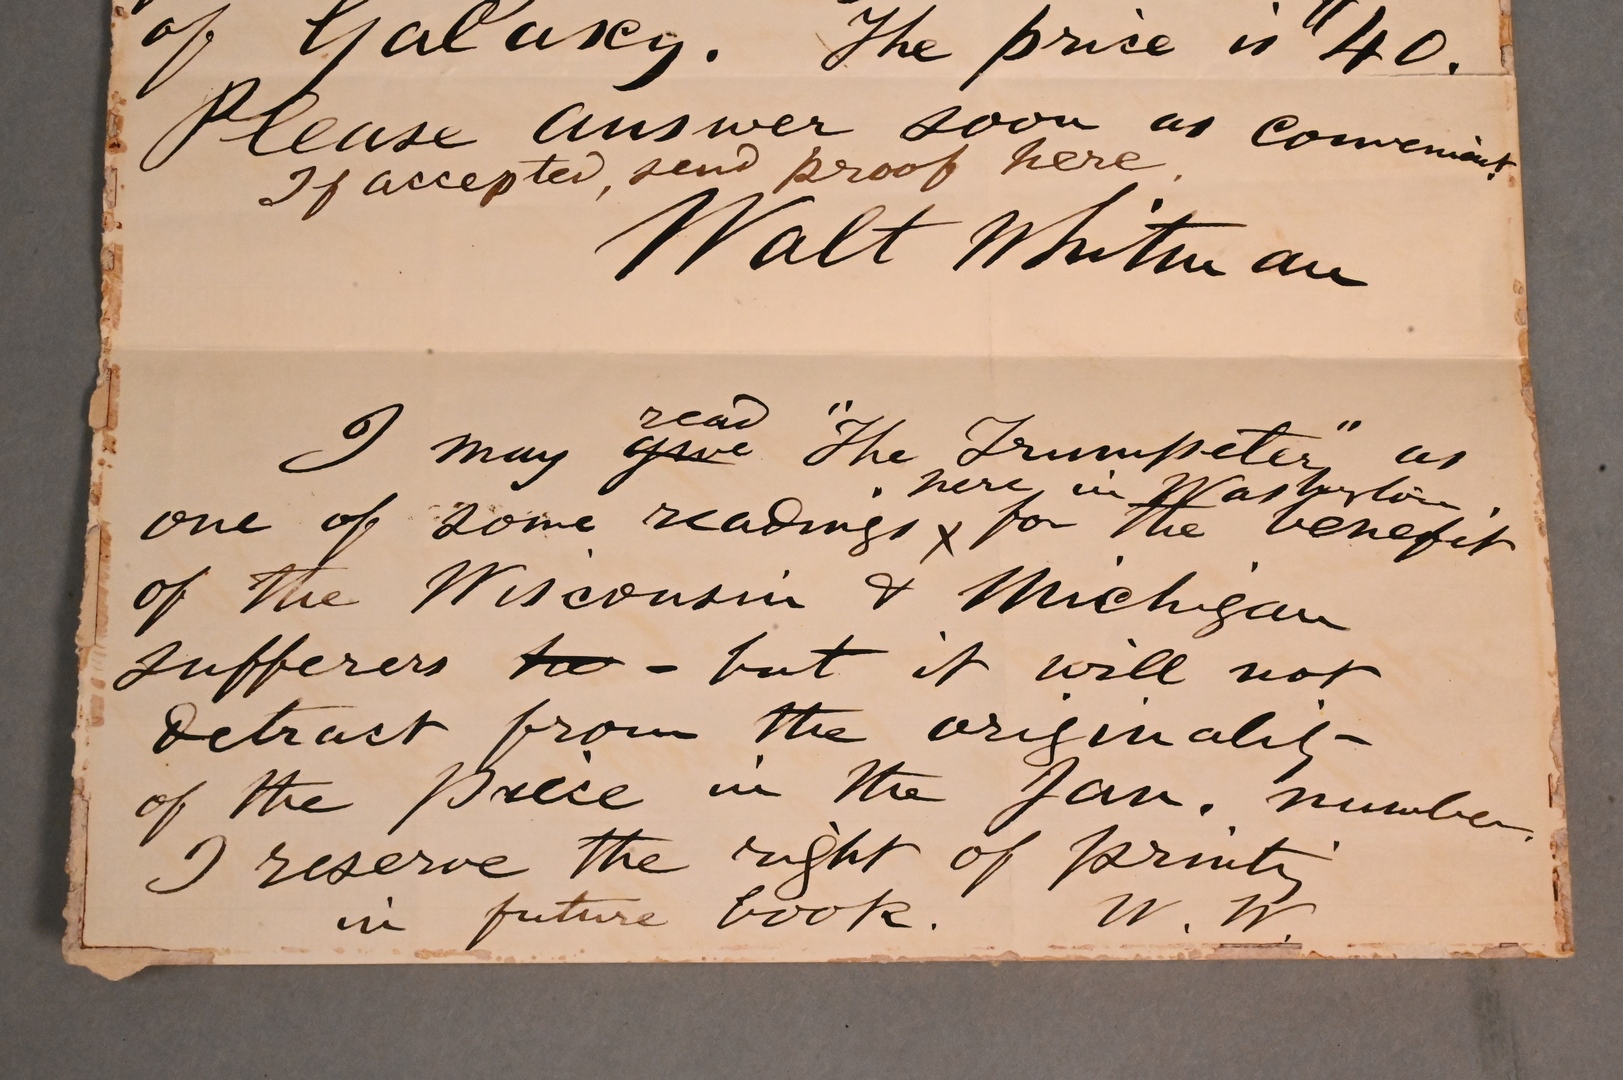 of Galaxy. The price is $40.
Please answer soon as convenient.
If accepted, send proof here.
Walt Whitman
read
I may give "The Trumpeter" as
here in Washington
one of some readings x for the benefit
of the Wisconsin & Michigan
sufferers too - but it will not
detract from the originality
of the piece in the Jan. number.
I reserve the right of printing
in future book. W. W.